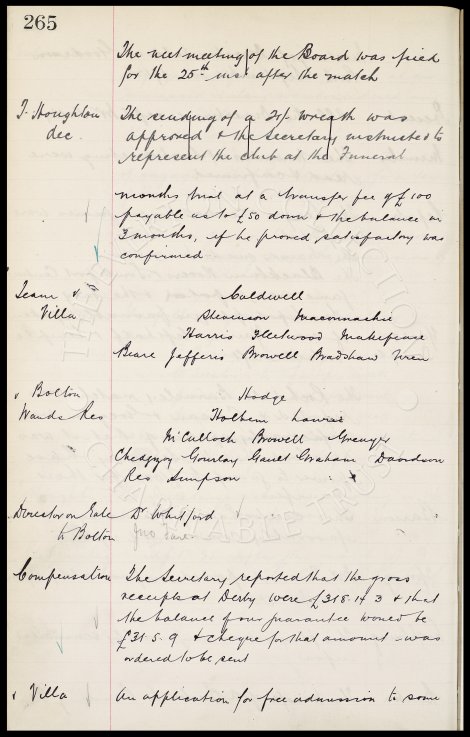 265
The next meeting of the Board was fixed
for the 25th inst after the match
T. Houghton
dec.
The sending of a 20/- wreath was
approved & the Secretary instructed to
represent the club at the Funeral
months trial at a transfer fee of £100
payable as to £50 down & the balance in
3 months, if he proved satisfactory was
confirmed
Team v
Villa
Caldwell
Stevenson Maconnachie
Harris Fleetwood Makepeace
Beare Jefferis Browell Bradshaw Wren
v Bolton
Wands Res
Hodge
Holbem Laurie
McCulloch Browell Grenyer
Chedgzoy Gourlay Gault Graham Davidson
Res Simpson
Director on Gate
to Bolton
Dr Whitford
Compensation
The Secretary reported that the gross
receipts at Derby were £318.14.3 & that
the balance of our guarantee would be
£31.5.9 & cheque for that amount was
ordered to be sent
v Villa
An application for free admission to some